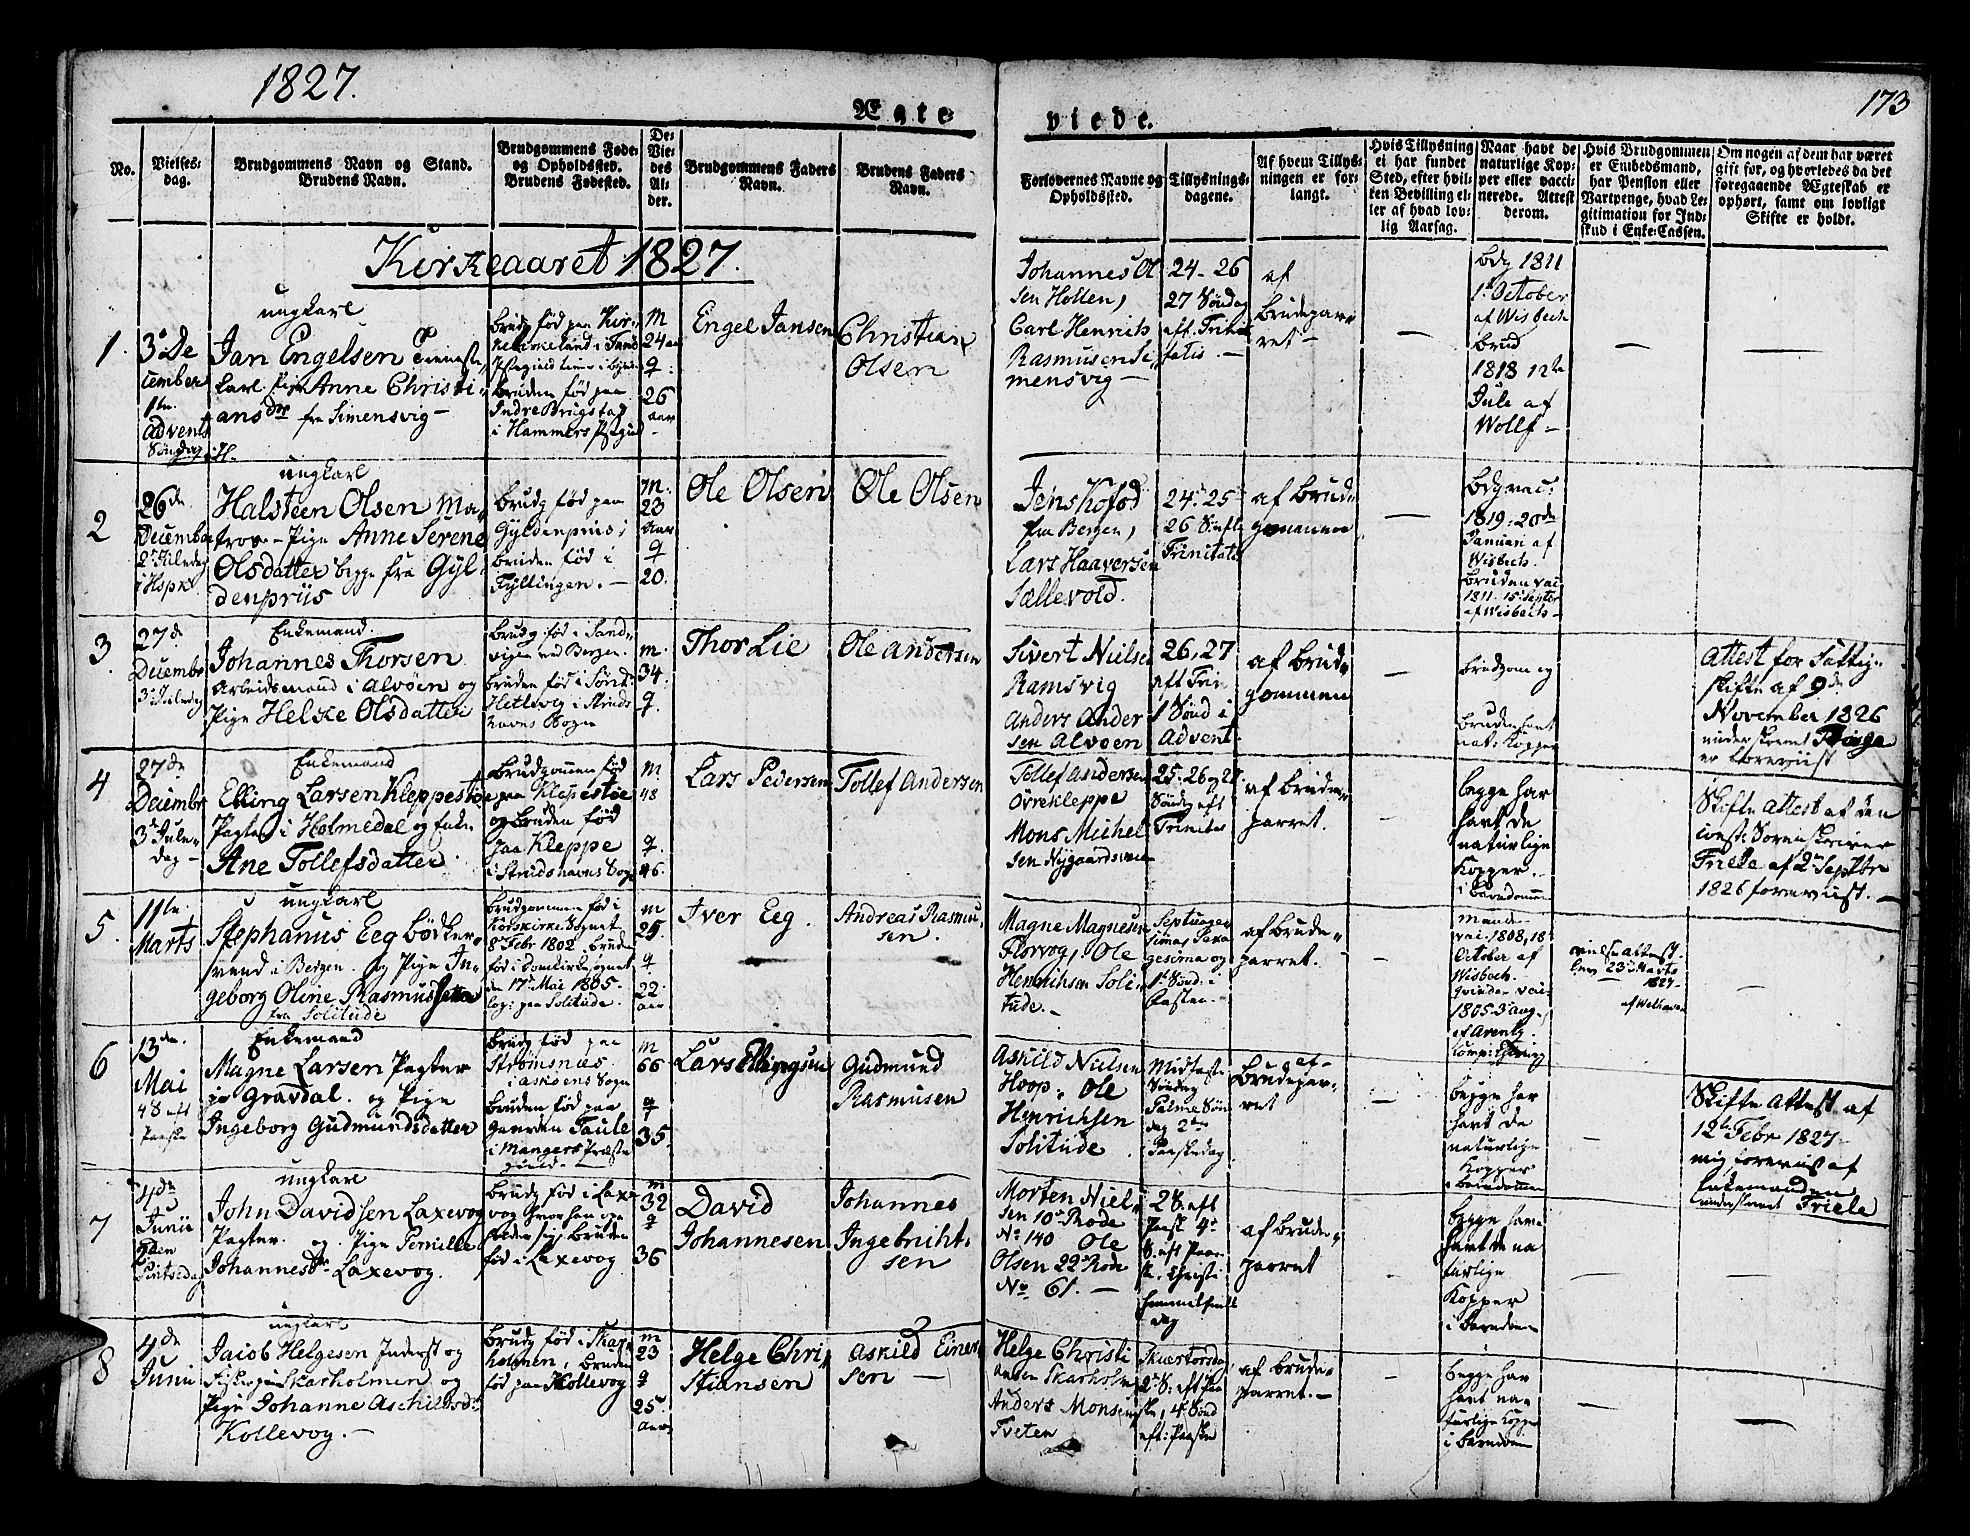 1827.
173
Ægte
viede.
No.
Vielses-
dag.
Brudgommens Navn og Stand.
Brudens Navn.
Brudgommens Føde-
og Opholdssted.
Brudens Fødested.
De
Vie-
des
Al-
der.
Brudgommens Faders
Navn.
Brudens Faders
Navn.
Forlovernes Navne og
Opholdssted.
Tillysnings-
dagene.
Af hvem Tillys-
ningen er for-
langt.
Hvis Tillysning
ei har fundet
Sted, efter hvil-
ken Bevilling el-
ler af hvad lov-
lig Aarsag.
Naar havt de
naturlige Kop-
per eller vacci-
nerede. Attest
derom.
Hvis Brudgommen
er Embedsmand,
har Pension eller
Vartpenge, hvad Le-
gitimation for Ind-
skud i Enke-Cassen.
Om nogen af dem har været
gift før, og hvorledes da det
foregaaende Ægteskab er
ophørt, samt om lovligt
Skifte er holdt.
Kirkeaaret 1827.
1.
3 De
cember
1te
Advent
Søndag
ungkarl
Jan Engelsen Tieneste
karl Pige Anne Christi-
ansdtr fra Simensvig
brudg fød paa Kir-
bruden fød paa
Indre Brugstad
i Hammers
M
24
Q
26
aar
Engel Jansen
Christian
Olsen
Johannes Ol
sen Hollen,
Carl Henrich
Rasmusen Si-
mensvig
24-26
27 Søndag
eft. Trini-
tatis.
af
brudepar-
ret
bdg 1811
1 October
af Wisbech
brud
1818 12te
Jule af
Wolff
2
26de
Decembr
2 Juledag
ungkarl
Halsteen Olsen Ma-
tros - Pige Anne Serene
Olsdatter begge fra Gyl-
denpriis
brudg fød paa
Gyldenpriis,
bruden fød i
Fyllingen.
M.
23
aar
Q
20.
Ole Olsen
Ole Olsen
Jens Kofod
fra Bergen,
Lars Haaversen
Sællevold.
24. 25
26 S. eft
Trinitatis
af brud-
gommen
bdg vac:
1819. 20de
Januari af
Wisbech.
bruden vac
1811. 15 Septbr
af Wisbech
3
27de
Decembr
3 Juledag
Enkemand.
Johannes Thorsen
Arbeidsmand i Alvøen og
Pige Helke Olsdatter
brudg fød i Sand-
vigen ved Bergen.
bruden fød i
m.
34.
Q.
Thor Lie
Ole Andersen
Sivert Nielsen
Ramsvig
Anders Ander
sen Alvøen
26, 27
eft Tri
1 Sønd i
Advent
af brud-
gommen
brudgom og
bruden havt
nat: Kopper
Attest for
skifte af 9de
November 1826
er foreviist
4
27de
Decembr
3 Jule-
dag
Enkemand
Elling Larsen Kleppestøe
Pagter i Holmedal og Enke
Ane Tollefsdatter
brudgommen fød
paa Kleppestøe
og bruden fød
paa Kleppe
i Strudshavns Sogn
M.
48
Q.
46.
Lars Pedersen
Tollef Andersen
Tollef Andersen
Øvrekleppe
Mons Michel
sen
25. 26 og 27.
Søndg eft
Trinitat
af brude-
parret.
begge har
havt de
naturlige
Kopper.
i barndommen
Skifte Attest af den
const: Sorenskriver
Friele af 2 Septbr
1826 foreviist.
5.
11te
Marts
ungkarl
Stephanus Eeg bødker-
svend i Bergen. og Pige In-
geborg Oline Rasmusdatter
fra Solitude
brudgommen fød i
Korskirke Sognet
8 Febr 1802. bruden
fød i Domkirke sognet
den 17 Mai 1805.
paa Solitude.
M
25.
Q
22.
aar
Iver Eeg.
Andreas Rasmu-
sen.
Magne Magnesen
Florvog, Ole
Henrichsen Soli-
tude.
Septuage-
sima, Sexa-
gesima og
1 Sønd. i
Fasten.
af brude-
parret.
vac. 1808, 18
October af
Wisbech.
1805. 3 aug.
vielse attest.
lev. 23 Marts
1827
af Welhaven
6
13de
Mai
4 S eft
Paaske
Enkemand
Magne Larsen Pagter
Gravdal. og Pige
Ingeborg Gudmundsdatter
brudg fød paa
Strømsnes
i Askøens Sogn
bruden fød paa
gaarden Taule
i Mangers Præste
gield.
M
66
Q
35.
Lars Ellingsen
Gudmund
Rasmusen
Askild Nielsen
Hoop. Ole
Hinrichsen
Solitude.
Midfaste
Søndag
Palme Søn
dag 2den
Paaskedag
af
brudepar-
ret
begge har
havt de
naturlige
Kopper
i barndommen
Skifte Attest af
12te Febr 1827
mig foreviist af
Enkemanden
Friele
7
4de
Junii
2den
Pintsedag
ungkarl
John Davidsen Laxevog
Pagter. og Pige Pernille
Johannesdr Laxevog.
brudg fød i Laxe
vog hvor han op
holder sig, bruden
fød i Laxevog
M
32
Q
36
David
Johannesen
Johannes
Ingebricht-
sen
Morten Niel-
sen 10 Rode
No 140 Ole
Olsen 22 Rode
No 61.
af brude-
parret
begge have
havt de na
turlige
Kopper
i barndom
8
4de
Junii
ungkarl
Jacob Helgesen Inderst og
Skarholmen og
Pige Johanne Aschildsdr
Kollevog.
brudg fød i Skar-
holmen, bruden
fød paa Kollevog
M
23
Q
25
aar
Helge Chri-
stiansen
Askild Einer
sen
Helge Christi
ansen Skarholm
Anders Monsen
Tveten
Skiertorsdag
2 S. eft Paa
ske, 4 Sønd
eft: Paaske
af brude-
parret.
begge har
havt na-
turlige Kopper
i barndom